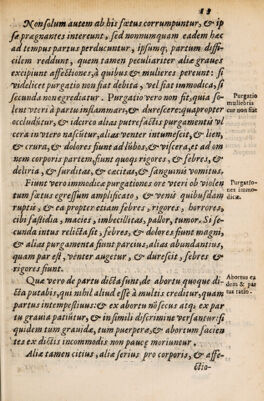 13
Non solum autem ab his fœtus corrumpuntur, & ip
sæ prægnantes intereunt, sed nonnumquam eadem hæc
ad tempus partus perducuntur, ipsumq; partum diffi-
cilem reddunt, quam tamen peculiariter aliæ graues
excipiunt affectiones, à quibus & mulieres pereunt: si
videlicet purgatio non fiat debita, vel fiat immodica, si
secunda non egrediatur. Purgatio vero non fit, quia so-
lent vteri à partu inflammari, & durescere: quapropter
occluduntur, & idcirco aliàs putrefactis purgamentis vl
cera in vtero nascuntur, alias venter intumescit, & lien,
& crura, & dolores fiunt ad lumbos, & viscera, et ad om
nem corporis partem, fiunt quoq; rigores, & febres, &
deliria, & surditas, & cæcitas, & sanguinis vomitus.
Purgatio
muliebris
cur non fiat
Fiunt vero immodicæ purgationes ore vteri ob violen
tum fœtus egressum amplificato, & venis quibusdam
ruptis, & ea propter etiam febres, rigores, horrores,
cibi fastidia, macies, imbecillitas, pallor, tumor. Si se-
cunda intus relicta sit, febres, & dolores fiunt magni,
& alias purgamenta fiunt parcius, alias abundantius,
quam par est, venter augetur, & durescit, febres &
rigores fiunt.
Purgatio-
nes immo-
dicæ.
Quæ vero de partu dicta sunt, de abortu quoque di-
cta putabis, qui nihil aliud esse à multis creditur, quam
partus intempestiuus: & ex abortu noscetur atq; ex par
tu grauia patiuntur, & in simili discrimine versantur: si
quidem tum grauidæ, tum puerperæ, & abortum facien
tes ex dictis incommodis non paucæ moriuntur.
Abortus ea
dem & par
tus ratio.
Aliæ tamen citius, aliæ serius pro corporis, & affe-
ctio-